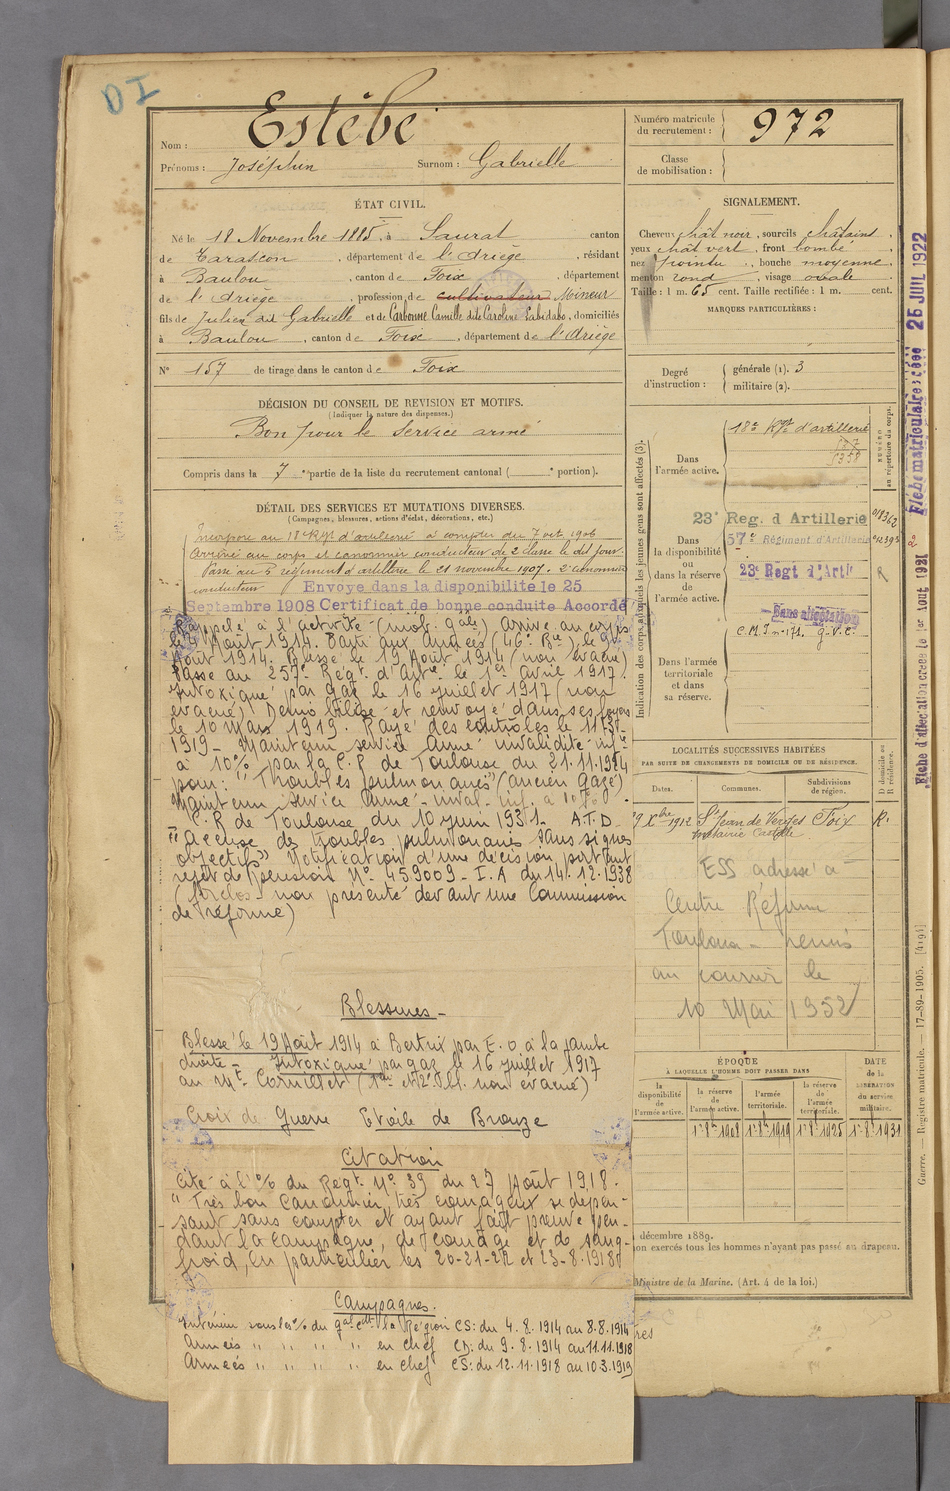 DI
Nom : Estèbe
Prénoms : Joséphin Surnom : Gabrielle
Numéro matricule du recrutement : 972
Classe de mobilisation :
ÉTAT CIVIL.
Né le 18 Novembre 1885, à Saurat canton
de Tarascon, département de l'Ariège, résidant
à Baulou, canton de Foix, département
de l'Ariège, profession de cultivateur Mineur
fils de Julien dit Gabrielle et de Carbonne Camille dite Caroline, domiciliés
à Baulou, canton de Foix, département de l'Ariège
N° 157 de tirage dans le canton de Foix
SIGNALEMENT.
Cheveux chât noir, sourcils châtains,
yeux chât vert, front bombé
nez pointu, bouche moyenne,
menton rond, visage ovale
Taille : 1 m. 65 cent. Taille rectifiée : 1 m. cent.
MARQUES PARTICULIÈRES :
Degré d'instruction : générale (1). 3
militaire (2).
DÉCISION DU CONSEIL DE REVISION ET MOTIFS.
(Indiquer la nature des dispenses.)
Bon pour le service armé
Compris dans la 7e partie de la liste du recrutement cantonal ( e portion).
DÉTAIL DES SERVICES ET MUTATIONS DIVERSES.
(Campagnes, blessures, actions d'éclat, décorations, etc.)
Incorporé au 18e Régt d'artillerie à compter du 7 oct 1906
Arrivé au corps et canonnier conducteur de 2e classe le dit jour.
Passé au régiment d'artillerie le 21 novembre 1907. 2e canonnier
conducteur Envoyé dans la disponibilité le 25
Septembre 1908 Certificat de bonne conduite Accordé
Rappelé à l'activité (mob. gale) Arrivé au corps
le 4 Août 1914. Parti aux armées (46e Bie) le 9
Août 1914. Blessé le 19 Août 1914 (non évacué)
Passé au 257e Régt. d'Artie le 1er Avril 1917.
Intoxiqué par gaz le 16 juillet 1917 (non
évacué) Démobilisé et renvoyé dans ses foyers
le 10 Mars 1919. Rayé des contrôles le 11-3-
1919 - Maintenu service Armé invalidité infre
à 10% par la C.R de Toulouse du 21.11.1924
pour : "Troubles pulmonaires" (ancien gazé)
Maintenu service Armé - inval. inf. à 10%
C.R de Toulouse du 10 juin 1931. A.T.D
"Accuse des troubles pulmonaires sans signes
objectifs" Notification d'une décision portant
rejet de pension N° 459009 - I.A du 14.12.1938
( non présenté devant une Commission
de réforme)
Blessures -
Blessé le 19 Août 1914 à Bertrix par E.O à la jambe
droite - Intoxiqué par gaz le 16 juillet 1917
au Mt Cornillet ( non évacué)
Croix de Guerre Etoile de Bronze
Citation
Cité à l'o/ du Régt. N° 39 du 27 Août 1918.
"Très bon canonnier, très courageux se dépen-
sant sans compter et ayant fait preuve pen-
dant la campagne, de courage et de sang-
froid, en particulier les 20-21-22 et 23-8-1918"
Campagnes.
Intérieur sous les o/ du gal Ct la Région CS: du 4.8.1914 au 8.8.1914
Armées " " " " en chef CD: du 9.8.1914 au 11.11.1918
Armées " " " " en chef CS: du 12.11.1918 au 10.3.1919
Indication des corps auxquels les jeunes gens sont affectés (3).
NUMÉRO au répertoire du corps.
Dans l'armée active.
18e Régt d'artillerie
Dans la disponibilité ou dans la réserve de l'armée active.
23e Reg. d Artillerie
57e Régiment d'Artillerie
23e Regt d'Artie
Sans affectation
Dans l'armée territoriale et dans sa réserve.
C.M.I n° 171. G.V.C.
LOCALITÉS SUCCESSIVES HABITÉES
PAR SUITE DE CHANGEMENTS DE DOMICILE OU DE RÉSIDENCE.
Dates. Communes. Subdivisions de région. D domicile ou R résidence.
9 Xbre 1912 St Jean de Verges Foix R.
ESS adressé à
Centre Réforme
Toulouse - remis
au courrier le
10 Mai 1952
ÉPOQUE
À LAQUELLE L'HOMME DOIT PASSER DANS
DATE de la LIBÉRATION du service militaire.
la disponibilité de l'armée active. la réserve de l'armée active. l'armée territoriale. la réserve de l'armée territoriale.
1er 8bre 1908 1er 8bre 1919 1er 8bre 1925 1er 8bre 1931
décembre 1889.
non exercés tous les hommes n'ayant pas passé au drapeau.
Ministre de la Marine. (Art. 4 de la loi.)
res
Fiche matriculaire créée 25 JUIL 1922
Fiche d'affectation créée le 1er Aout 1921
Guerre. — Registre matricule. — 17-89-1905. [4191]